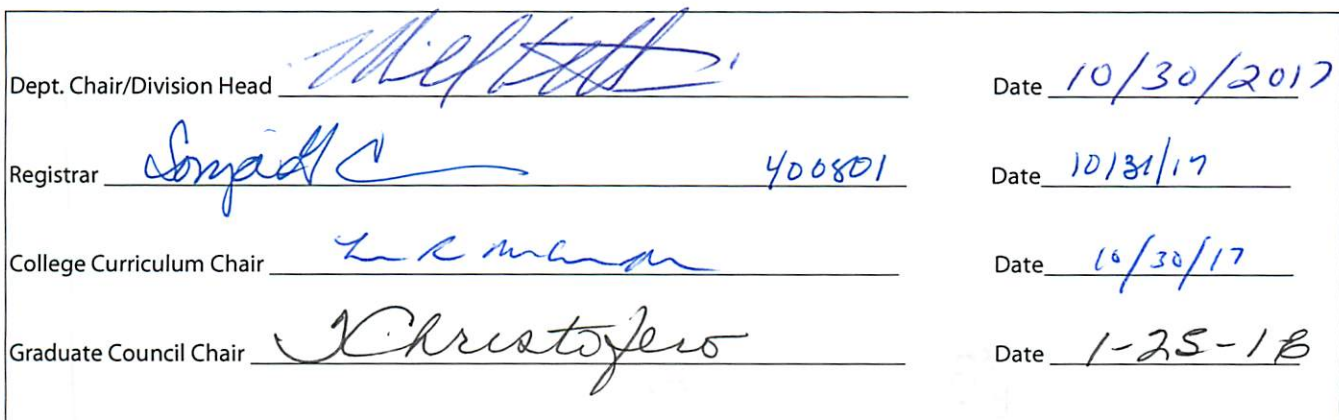 Dept. Chair/Division Head Date 10/30/2017
Registrar Sonja 400801 Date 10/31/17
College Curriculum Chair Date 10/30/17
Graduate Council Chair TChristofero Date 1-25-18